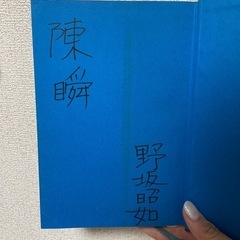 陳
瞬
野坂昭如